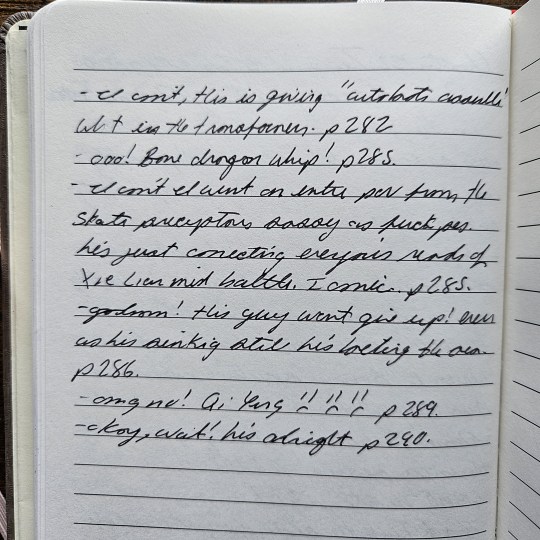 - I can't, this is giving "autobots assemble"
but in the transformers. p282
- ooo! Bone dragon whip! p285.
- I can't I want an entire pov from the
State preceptors sassy as fuck pov.
his just correcting everyones reads of
Xie Lian mid battle. Iconic. p285.
- goddamn! this guy wont give up! even
as his sinking still his boiling the sea.
p286.
- omg no! Qi Ying !! !! !! p289.
- okay, wait! his alright p290.